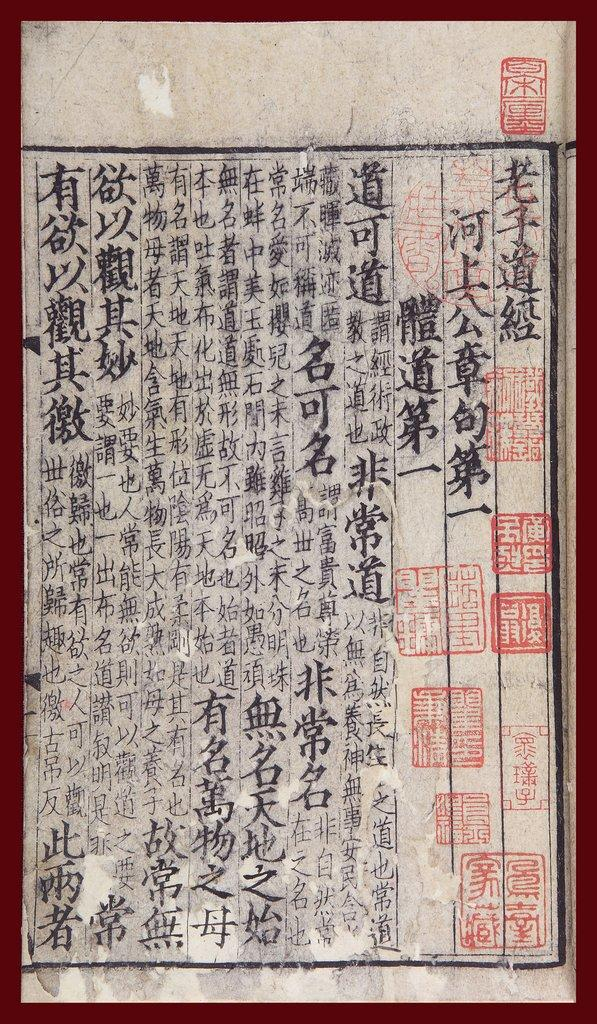 老子道經
河上公章句第一
體道第一
道可道謂經術政教之道也非常道非自然長生之道也常道
當以無為養神無事安民含光
藏暉滅迹匿端不可稱道名可名謂富貴尊榮高世之名也非常名非自然常在之名也
常名愛如嬰兒之未言雞子之未分明珠
在蚌中美玉處石間內雖昭昭外如愚頑無名天地之始
無名者謂道道無形故不可名也始者道
本也吐氣布化出於虛无為天地本始也有名萬物之母
有名謂天地天地有形位陰陽有柔剛是其有名也
萬物母者天地含氣生萬物長大成熟如母之養子故常無
欲以觀其妙妙要也人常能無欲則可以觀道之要
要謂一也一出布名道讚叙明是非常
有欲以觀其徼徼歸也常有欲之人可以觀
世俗之所歸趣也徼古吊反此兩者